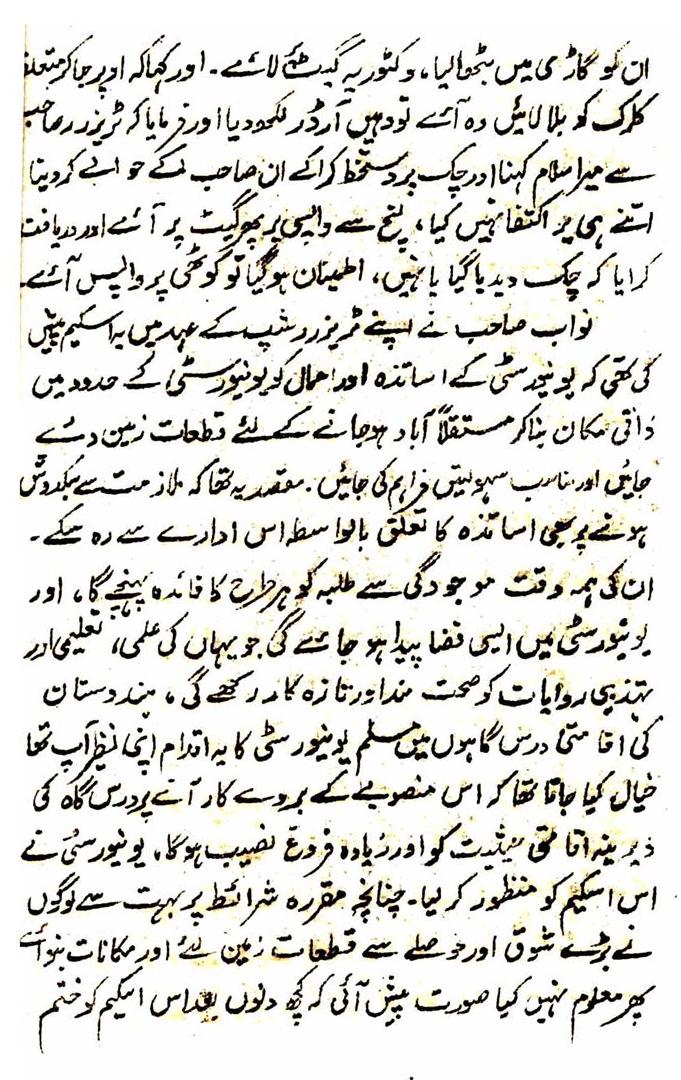 ان کو گاڑی میں بٹھوالیا، وکٹوریہ گیٹ لائے۔ اور کہا کہ اوپر جا کر متعلقہ
کلرک کو بلا لائیں وہ آئے تو وہیں آرڈر لکھ دیا اور فرمایا کہ ٹریزرر صاحب
سے میرا سلام کہنا اور چک پر دستخط کرا کے ان صاحب کے حوالے کر دینا
اتنے ہی پر اکتفا نہیں کیا، لنچ سے واپسی پر پھر گیٹ پر آئے اور دریافت
کرایا کہ چک دیدیا گیا یا نہیں، اطمینان ہو گیا تو کوٹھی پر واپس آئے۔
نواب صاحب نے اپنے ٹریزرر شپ کے عہد میں یہ اسکیم پیش
کی تھی کہ یونیورسٹی کے اساتذہ اور عمال کو یونیورسٹی کے حدود میں
ذاتی مکان بنا کر مستقلاً آباد ہو جانے کے لئے قطعات زمین دے
جائیں اور مناسب سہولتیں فراہم کی جائیں۔ مقصد یہ تھا کہ ملازمت سے سبکدوش
ہونے پر بھی اساتذہ کا تعلق بالواسطہ اس ادارے سے رہ سکے۔
ان کی ہمہ وقت موجودگی سے طلبہ کو ہر طرح کا فائدہ پہنچے گا، اور
یونیورسٹی میں ایسی فضا پیدا ہو جائے گی جو یہاں کی علمی، تعلیمی اور
تہذیبی روایات کو صحت مند اور تازہ کار رکھے گی، ہندوستان
کی اقامتی درس گاہوں میں مسلم یونیورسٹی کا یہ اقدام اپنی نظیر آپ تھا
خیال کیا جاتا تھا کہ اس منصوبے کے بروے کار آنے پر درس گاہ کی
دیرینہ اقامتی حیثیت کو اور زیادہ فروغ نصیب ہوگا، یونیورسٹی نے
اس اسکیم کو منظور کر لیا۔ چنانچہ مقررہ شرائط پر بہت سے لوگوں
نے بڑے شوق اور حوصلے سے قطعات زمین لئے اور مکانات بنوائے
پھر معلوم نہیں کیا صورت پیش آئی کہ کچھ دنوں بعد اس اسکیم کو ختم